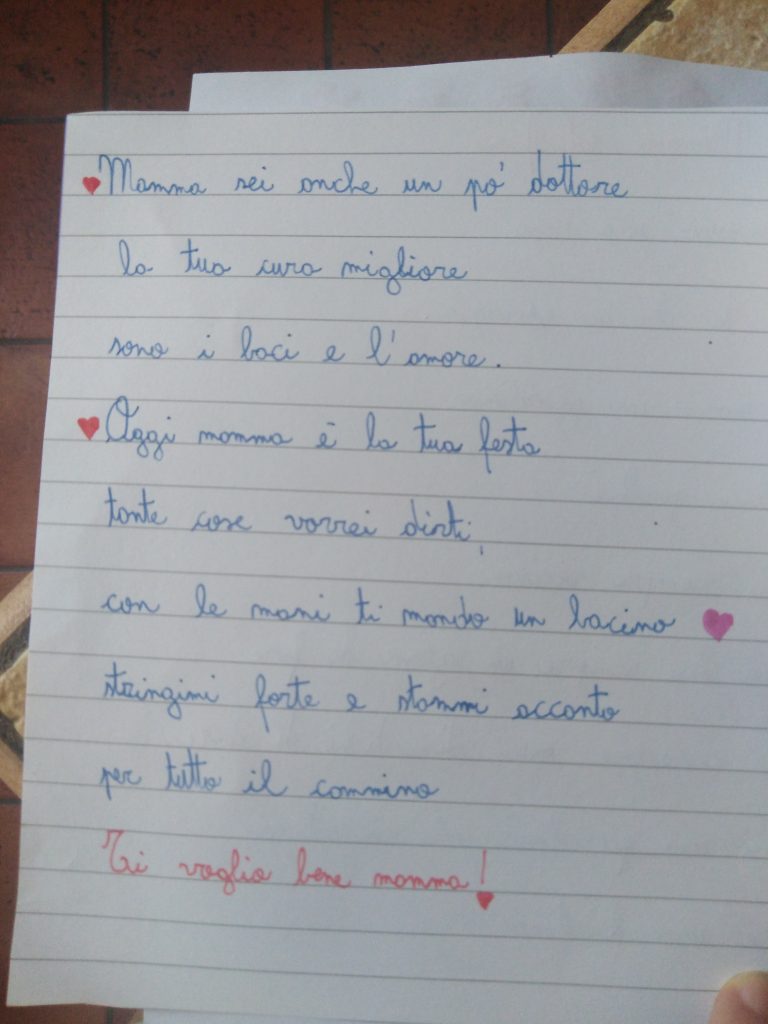 Mamma sei anche un pó dottore
la tua cura migliore
sono i baci e l'amore.
Oggi mamma è la tua festa
tante cose vorrei dirti,
con le mani ti mando un bacino
stringimi forte e stammi accanto
per tutto il cammino
Ti voglio bene mamma!